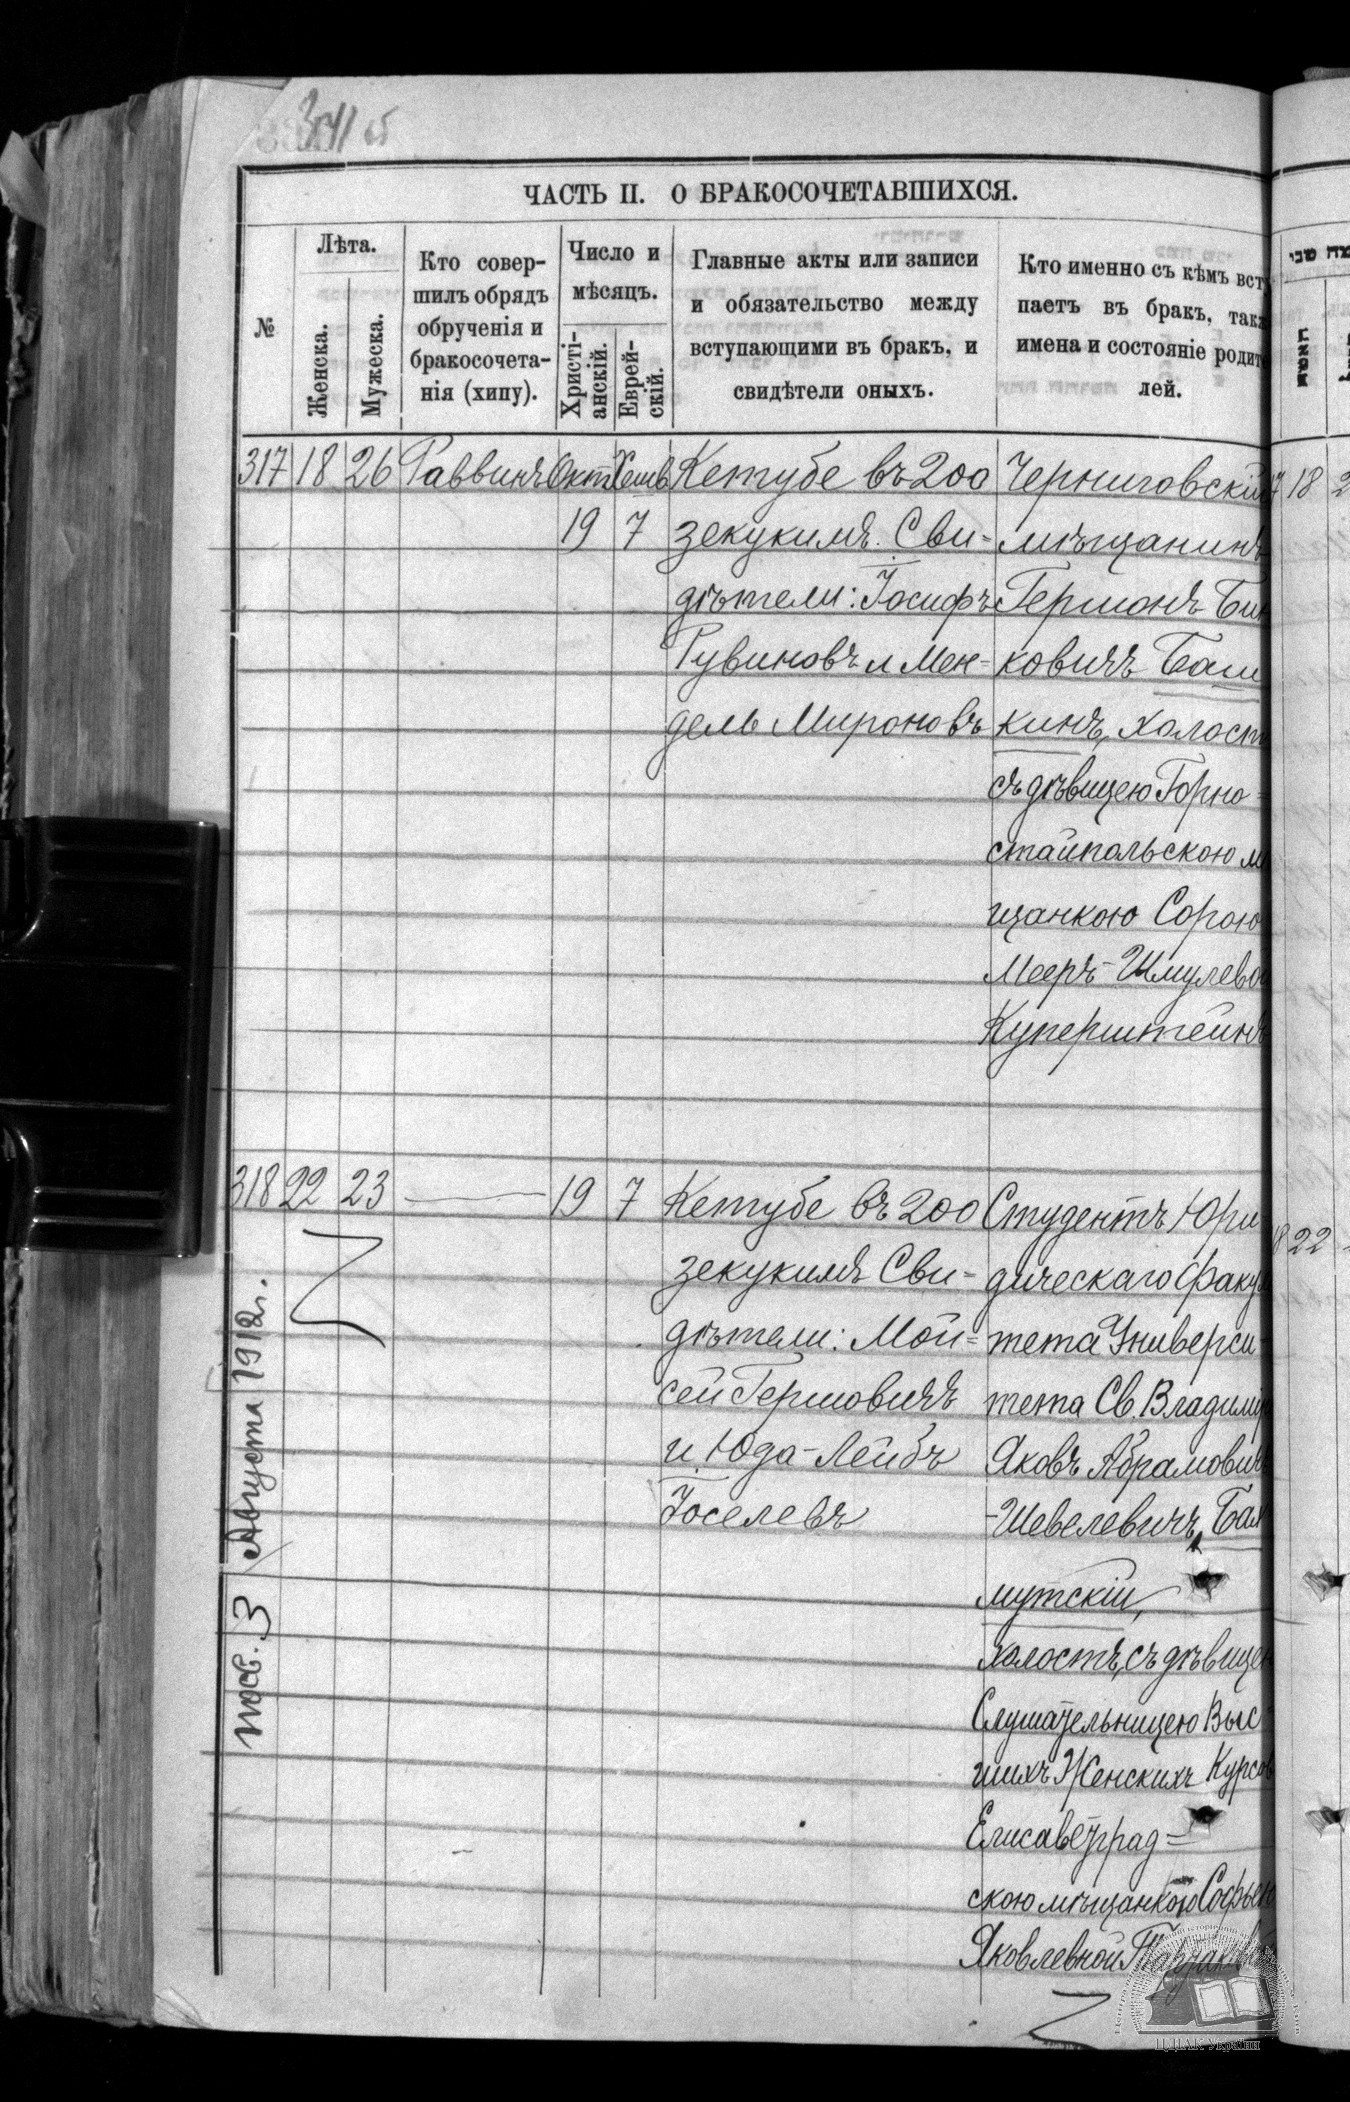 ЧАСТЬ II. О БРАКОСОЧЕТАВШИХСЯ.
№
Лѣта.
Женска.
Мужеска.
Кто совер-
шилъ обрядъ
обрученія и
бракосочета-
нія (хипу).
Число и
мѣсяцъ.
Христі-
анскій.
Еврей-
скій.
Главные акты или записи
и обязательство между
вступающими въ бракъ, и
свидѣтели оныхъ.
Кто именно съ кѣмъ всту
паетъ въ бракъ, такж
имена и состояніе родите
лей.
317 18 26 Раввинъ Окт. Хешв
19 7
Кетубе въ 200
зекукимъ. Сви-
дѣтели: Іосифъ
Рувиновъ и Мен-
дель Мироновъ
Черниговскій
мѣщанинъ
Германъ Бин
ковичъ Баш
кинъ, холост
съ дѣвицею Горно-
стайпольскою м
щанкою Сорою
Мееръ-Шмулевой
Куперштейнъ
318 22 23 — 19 7
Кетубе въ 200
зекукимъ Сви-
дѣтели: Мой-
сей Гершовичъ
и Юда-Лейбъ
Іоселевъ
Студентъ Юри
дическаго Факул
тета Универси-
тета Св. Владимір
Яковъ Абрамович
-Шевелевичъ, Бах
мутскій,
холостъ, съ дѣвицею
Слушательницею Выс
шихъ Женскихъ Курсов
Елисаветград-
скою мѣщанкою Софьею
Яковлевной
посв. 3 Августа 1912 г.
18 2
22
ЦДІАК України